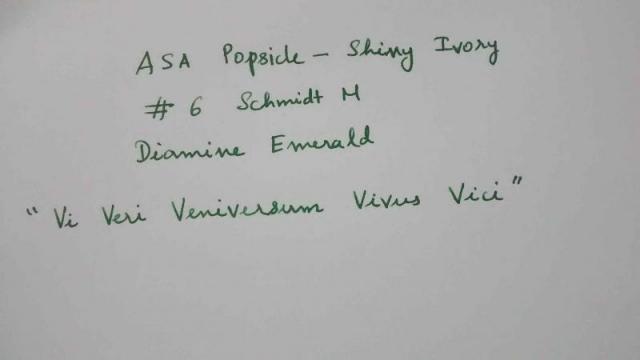 ASA Popsicle - Shiny Ivory
# 6 Schmidt M
Diamine Emerald
"Vi Veri Veniversum Vivus Vici"